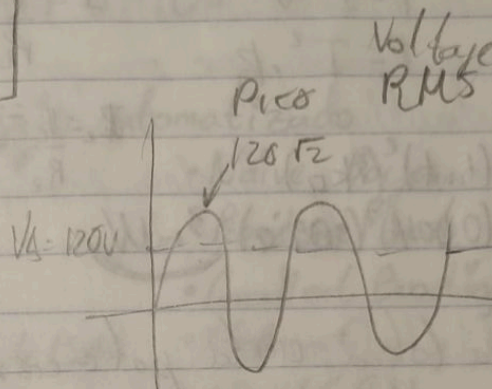 Voltaje
RMS
Pico
120 √2
Vs = 120v